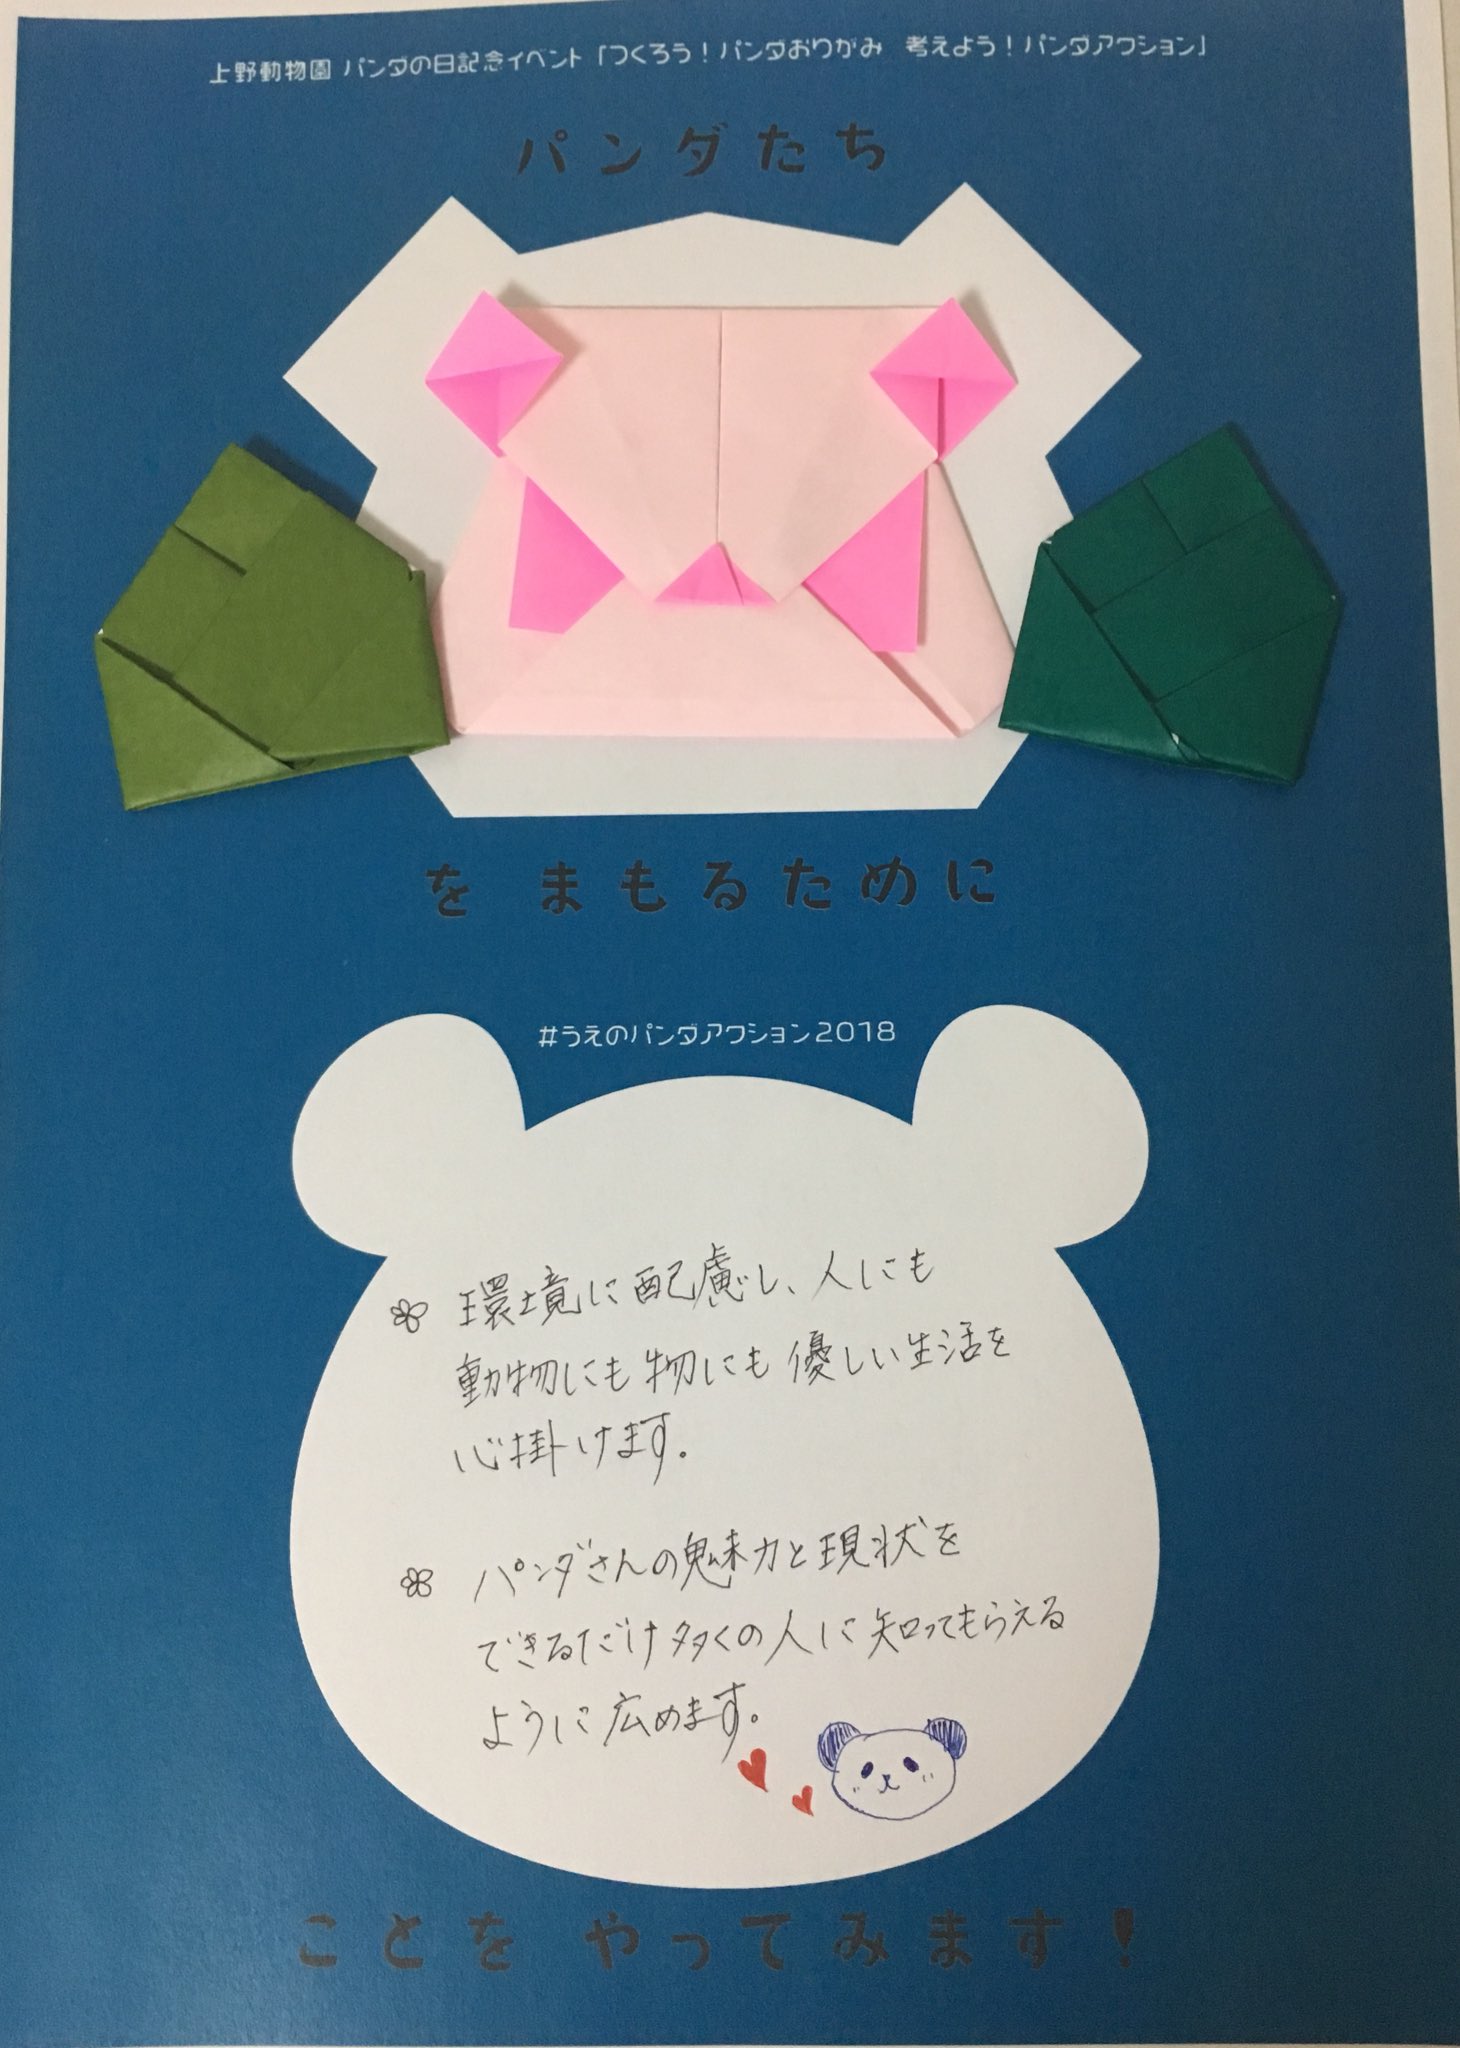 上野動物園 パンダの日記念イベント「つくろう！パンダおりがみ 考えよう！パンダアクション」
パンダたち
を まもるために
#うえのパンダアクション2018
環境に配慮し、人にも
動物にも物にも優しい生活を
心掛けます。
パンダさんの魅力と現状を
できるだけ多くの人に知ってもらえる
ように広めます。
ことを やってみます！